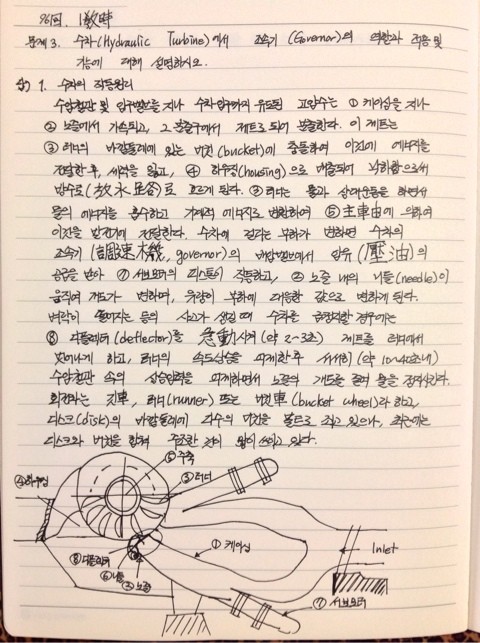 96회. 1교시
문제 3. 수차(Hydraulic Turbine)에서 조속기(Governor)의 역할과 작동 및
기능에 대해 설명하시오.
답) 1. 수차의 작동원리
수압철관 및 입구밸브를 지나 수차 입구까지 유도된 고압수는 ① 케이싱을 지나
② 노즐에서 가속되고, 그 분출구에서 제트로 되어 분출한다. 이 제트는
③ 러너의 바깥둘레에 있는 버킷(bucket)에 충돌하여 이것에 에너지를
전달한 후, 세력을 잃고, ④ 하우징(housing)으로 배출되어 낙하함으로써
방수로(放水路)로 흐르게 된다. ③ 러너는 물과 상대운동을 하면서
물의 에너지를 흡수하고 기계적 에너지로 변환하여 ⑤ 主軸에 의하여
이것을 발전기에 전달한다. 수차에 걸리는 부하가 변하면 수차의
조속기(調速機, governor)의 배압밸브에서 압유(壓油)의
공급을 받아 ⑦ 서보모터의 피스톤이 작동하고, ② 노즐 내의 니들(needle)이
움직여 개도가 변하며, 유량이 부하에 대응한 값으로 변하게 된다.
벼락이 떨어지는 등의 사고가 생길 때 수차를 급정지할 경우에는
⑧ 디플렉터(deflector)를 急動시켜(약 2~3초) 제트를 러너에서
벗어나게 하고, 러너의 속도상승을 피하게한 후 서서히(약 10~40초내)
수압철관 속의 상승압력을 피하게하면서 노즐의 개도를 줄여 물을 정지시킨다.
회전하는 깃車, 러너(runner) 또는 버킷車(bucket wheel)라 하고,
디스크(disk)의 바깥둘레에 다수의 버킷을 볼트로 죄고 있으나, 최근에는
디스크와 버킷을 합쳐 주조한 것이 많이 쓰이고 있다.
⑤ 주축
③ 러너
④ 하우징
① 케이싱
Inlet
⑧ 디플렉터
⑥ 니들
② 노즐
⑦ 서보모터